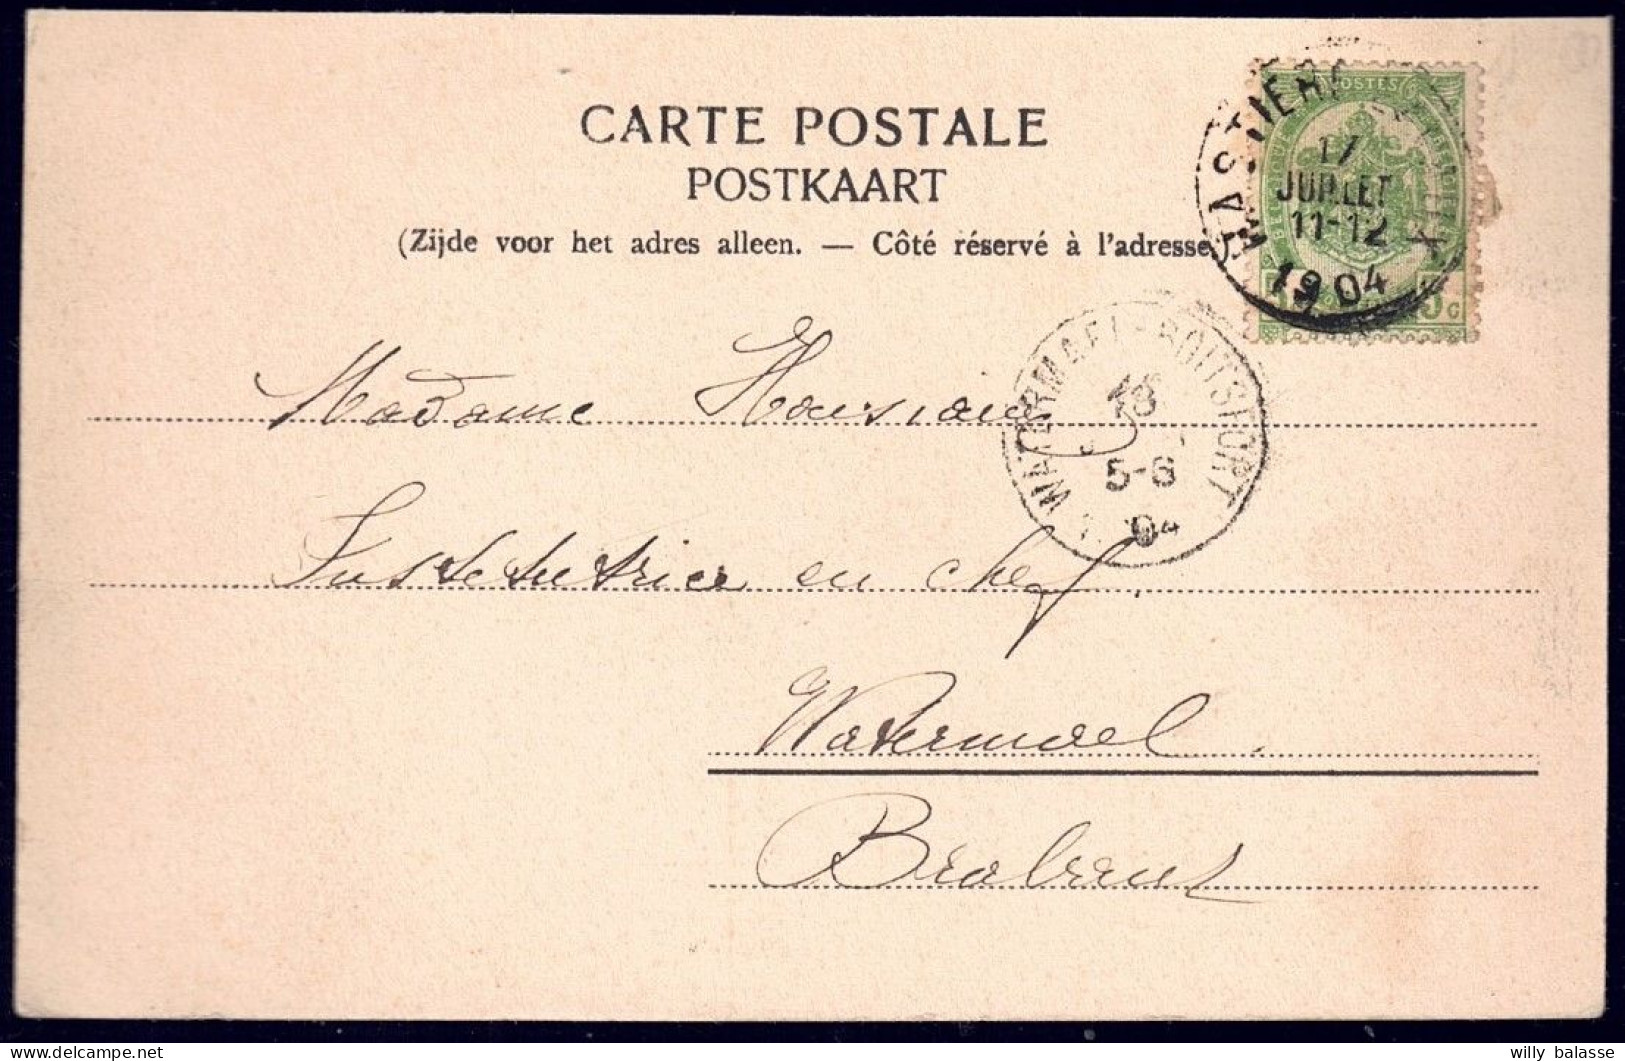 CARTE POSTALE
POSTKAART
(Zijde voor het adres alleen. — Côté réservé à l'adresse)
POSTES
17
JUILLET
11-12
1904
5 c
WATERMAEL-BOITSFORT
18
5-6
04
Madame
Institutrice en chef
Watermael.
Brabant
willy balasse